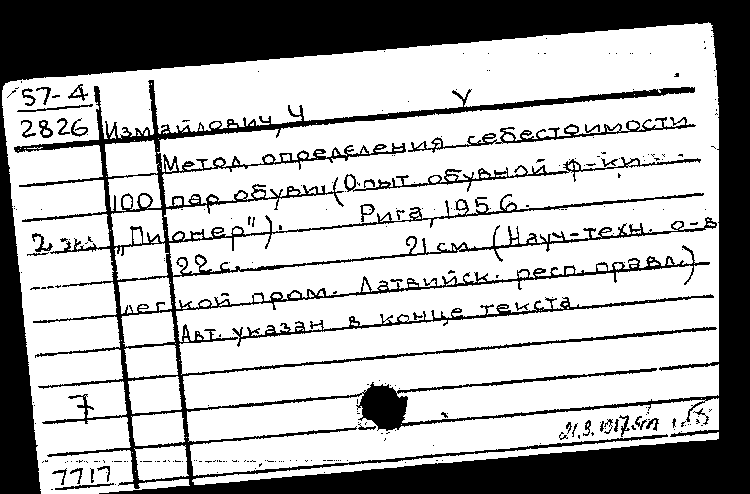 57-4 У
2826 Измайлович, Ч
Метод определения себестоимости
100 пар обуви (Опыт обувной ф-ки
2 экз „Пионер"). Рига, 1956.
22 с. 21 см. (Науч-техн. о-в
легкой пром. Латвийск. респ. правл.)
Авт. указан в конце текста.
7
7717